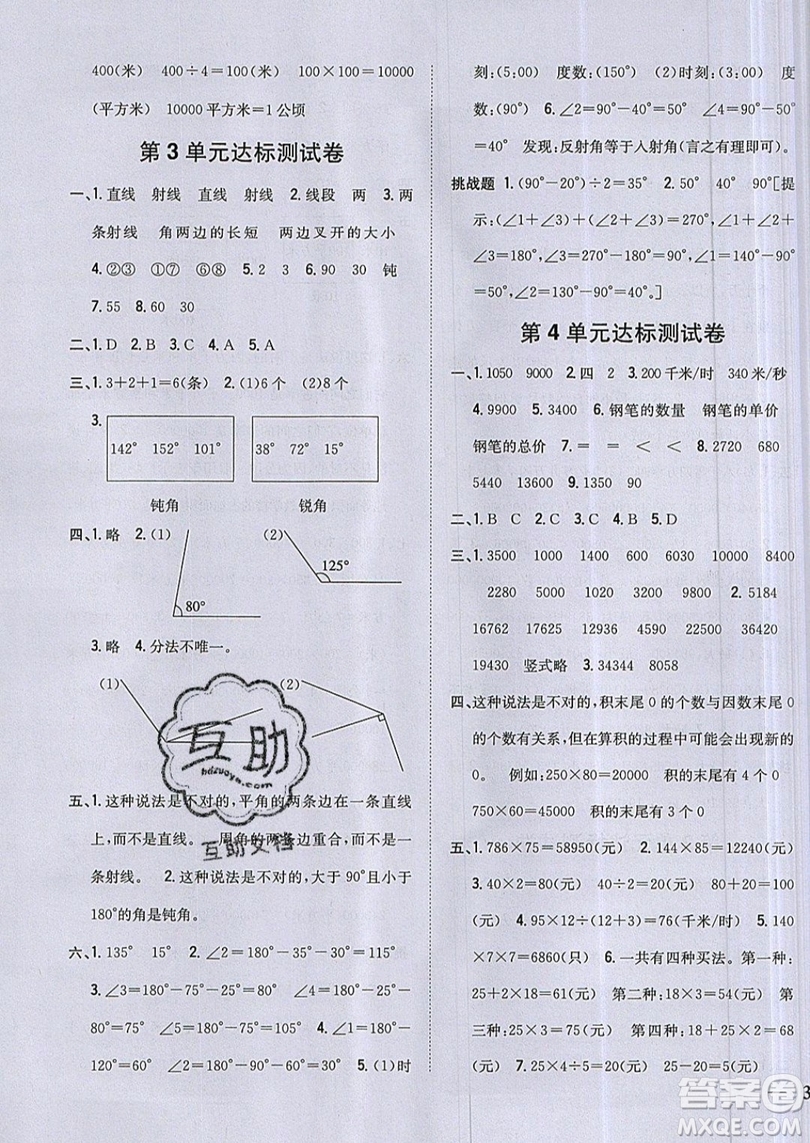 400(米) 400÷4=100(米) 100×100=10000
(平方米) 10000平方米=1公顷
第3单元达标测试卷
一、1.直线 射线 直线 射线 2.线段 两 3.两
条射线 角两边的长短 两边叉开的大小
4.②③ ①⑦ ⑥⑧ 5.2 3 6.90 30 钝
7.55 8.60 30
二、1.D 2.B 3.C 4.A 5.A
三、1.3+2+1=6(条) 2.(1)6个 (2)8个
3.
142° 152° 101°
38° 72° 15°
钝角 锐角
四、1.略 2.(1) (2)
80°
125°
3.略 4.分法不唯一。
(1) (2)
五、1.这种说法是不对的,平角的两条边在一条直线
上,而不是直线。一周角的两条边重合,而不是一
条射线。 2.这种说法是不对的,大于90°且小于
180°的角是钝角。
六、1.135° 15° 2.∠2=180°-35°-30°=115°
3.∠3=180°-55°-90°=35° ∠4=180°-
90°-35°=55° ∠5=180°-55°=125° 4.∠1=180°-
60°=120° ∠2=180°-90°-60°=30° 5.(1)时
刻:(5:00) 度数:(150°) (2)时刻:(3:00) 度
数:(90°) 6.∠2=90°-50°=40° ∠4=90°-50°
=40° 发现:反射角等于入射角(言之有理即可)。
挑战题 1.(90°-20°)÷2=35° 2.50° 40° 90°[提
示:(∠1+∠3)+(∠2+∠3)=270°,∠1+∠2
+∠3=180°,∠3=270°-180°=90°,∠1=180°-
∠3=180°-130°=50°,∠2=180°-∠1-∠3=
180°-50°-90°=40°。]
第4单元达标测试卷
一、1.1050 9000 2.四 2 3.200千米/时 340米/秒
4.9900 5.3400 6.钢笔的数量 钢笔的单价
钢笔的总价 7.= = < < 8.2720 680
5440 13600 9.1350 90
二、1.B C 2.C 3.B 4.B 5.D
三、1.3500 1000 1400 6030 10000 8400
2280 5000 12000 7200 2.5184
16762 10527 14515 30000 36420
19430 竖式略 3.34344 8058
四、这种说法是不对的,积末尾0的个数与因数末尾0
的个数有关系,但在算积的过程中可能会出现新的
0。 例如:250×80=20000 积的末尾有4个0
750×60=45000 积的末尾有3个0
五、1.786×75=58950(元) 2.144×85=12240(元)
3.40×2=80(元) 40÷2=20(元) 80+20=100
(元) 4.95×12÷(12+3)=76(千米/时) 5.140
×7×7=6860(只) 6.一共有四种买法。第一种:
25+2×18=61(元) 第二种:18×3=54(元) 第
三种:25×3=75(元) 第四种:18+25×2=68
(元) 7.25×4÷5=20(元) 25-20=5(元)
互助
hdzuoye.com
互助文档
答案圈
MXQE.COM
3